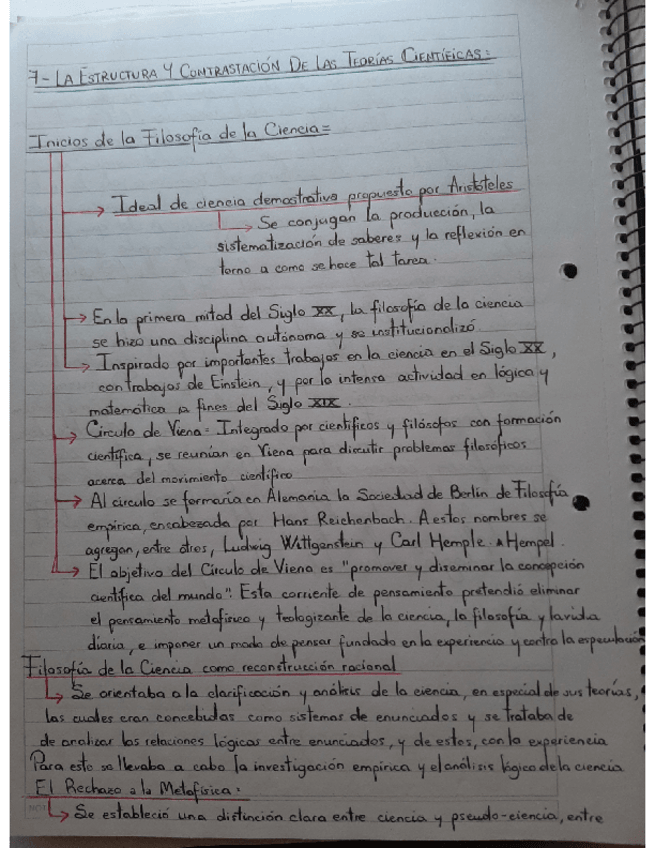 7- LA ESTRUCTURA Y CONTRASTACIÓN DE LAS TEORÍAS CIENTÍFICAS:
Inicios de la Filosofía de la Ciencia=
Ideal de ciencia demostrativa propuesto por Aristóteles
Se conjugan la producción, la
sistematización de saberes y la reflexión en
torno a como se hace tal tarea.
En la primera mitad del Siglo XX, la filosofía de la ciencia
se hizo una disciplina autónoma y se institucionalizó.
Inspirado por importantes trabajos en la ciencia en el Siglo XX,
con trabajos de Einstein, y por la intensa actividad en lógica y
matemática a fines del Siglo XIX.
Circulo de Viena= Integrado por científicos y filósofos con formación
científica, se reunían en Viena para discutir problemas filosóficos
acerca del movimiento científico
Al circulo se formaría en Alemania la Sociedad de Berlín de Filosofía
empírica, encabezada por Hans Reichenbach. A estos nombres se
agregan, entre otros, Ludwig Wittgenstein y Carl Hemple. * Hempel.
El objetivo del Circulo de Viena es "promover y diseminar la concepción
científica del mundo". Esta corriente de pensamiento pretendió eliminar
el pensamiento metafísico y teologizante de la ciencia, la filosofía y la vida
diaria, e imponer un modo de pensar fundado en la experiencia y contra la especulación
Filosofía de la Ciencia como reconstrucción racional
Se orientaba a la clarificación y análisis de la ciencia, en especial de sus teorías,
las cuales eran concebidas como sistemas de enunciados y se trataba de
de analizar las relaciones lógicas entre enunciados, y de estos, con la experiencia
Para esto se llevaba a cabo la investigación empírica y el análisis lógico de la ciencia
El Rechazo a la Metafísica:
Se estableció una distinción clara entre ciencia y pseudo-ciencia, entre